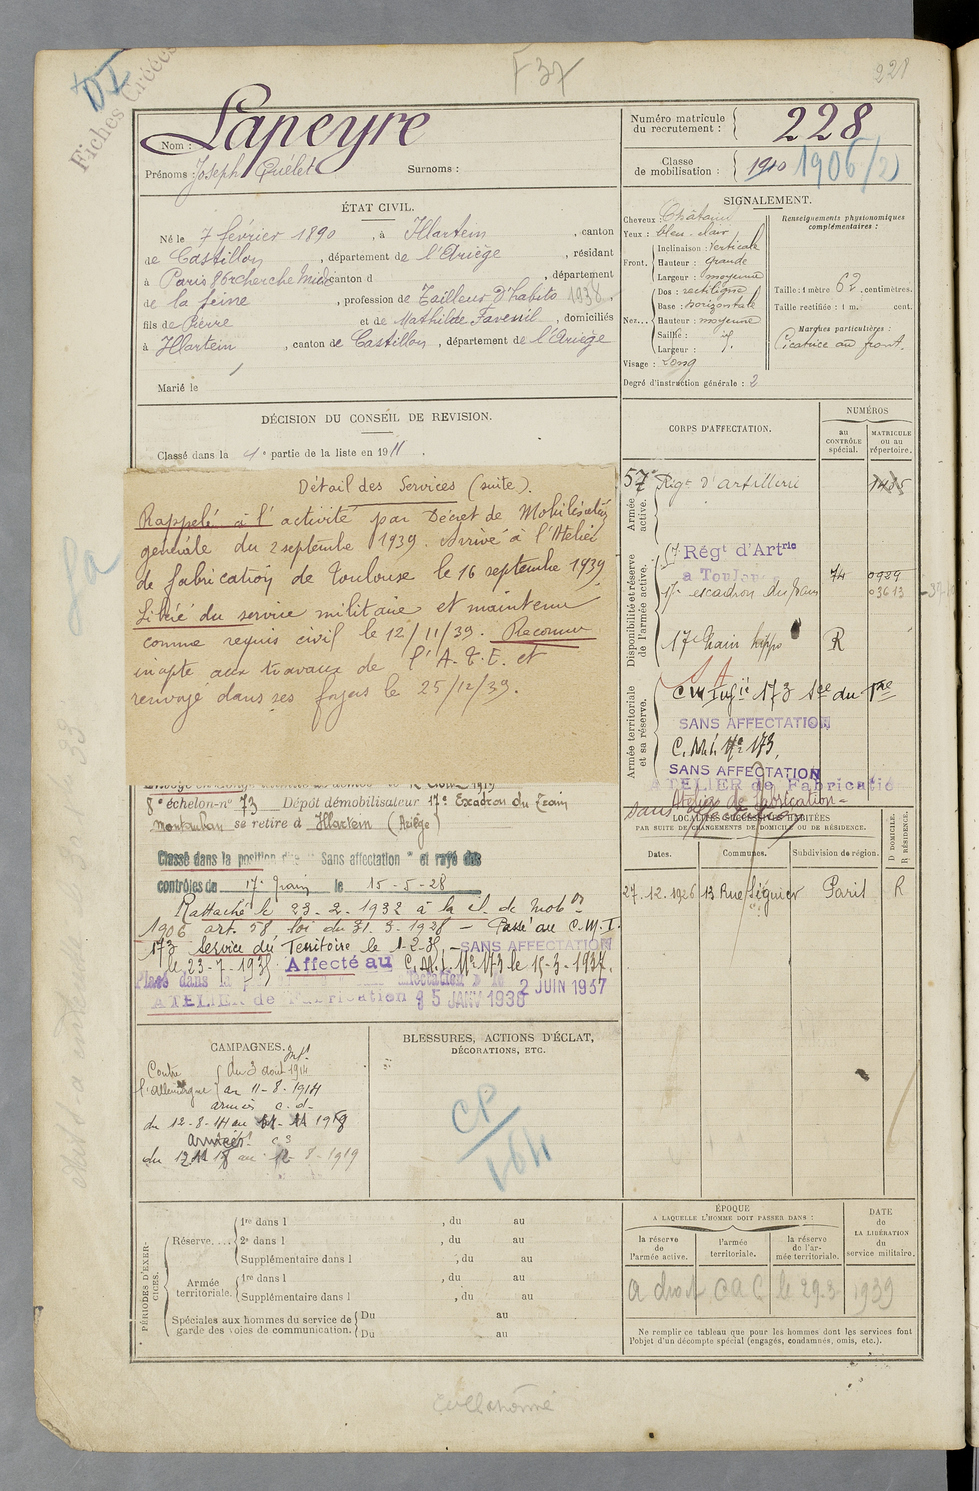 Fiches Créées
DI
F 37
228
Nom : Lapeyre
Prénoms : Joseph Quélet Surnoms :
Numéro matricule du recrutement : 228
Classe de mobilisation : 1910 1906/2
ÉTAT CIVIL.
Né le 7 février 1890, à Illartein, canton
de Castillon, département de l'Ariège, résidant
à Paris 86 r cherche Midi canton d , département
de la Seine, profession de Tailleur d'habits 1938,
fils de Pierre et de Mathilde , domiciliés
à Illartein, canton de Castillon, département de l'Ariège
Marié le
SIGNALEMENT.
Cheveux : Châtain
Yeux : bleu clair
Front. Inclinaison : Verticale
Hauteur : grande
Largeur : moyenne
Nez... Dos : rectiligne
Base : horizontale
Hauteur : moyenne
Saillie : id.
Largeur :
Visage : Long
Degré d'instruction générale : 2
Renseignements physionomiques complémentaires :
Taille : 1 mètre 62 centimètres.
Taille rectifiée : 1 m. cent.
Marques particulières :
Cicatrice au front.
DÉCISION DU CONSEIL DE REVISION.
Classé dans la 1e partie de la liste en 1911.
Détail des Services (suite).
Rappelé à l'activité par Décret de Mobilisation
générale du 2 septembre 1939. Arrivé à l'Atelier
de fabrication de Toulouse le 16 septembre 1939
Libéré du service militaire et maintenu
comme requis civil le 12/11/39. Reconnu
inapte aux travaux de l'A.T.E. et
renvoyé dans ses foyers le 25/12/39.
8e échelon-n° 73 Dépôt démobilisateur 17e Escadron du Train
Montauban se retire à Illartein (Ariège)
Classé dans la position dite "Sans affectation" et rayé des
contrôles du 17e Train le 15-5-28
Rattaché le 23-2-1932 à la cl. de mobon
1906 art. 58, loi du 31-3-1928 - Passé au C.M.I.
173 Service du Territoire le 1-2-35 - SANS AFFECTATION
le 23-7-1935 Affecté au C.M.I. N° 173 le 15-3-1937.
Placé dans la 2 JUIN 1937
ATELIER de Fabrication 5 JANV 1938
CORPS D'AFFECTATION.
NUMÉROS
au CONTRÔLE spécial.
MATRICULE ou au répertoire.
Armée active.
57e Régt d'artillerie 1415
Disponibilité et réserve de l'armée active.
57 Régt d'Artrie
a Toulouse 74 0929
17e escadron du train 03613
17e Train hippo R
Armée territoriale et sa réserve.
S A
C. M. Infie 173 Sce du Tre
SANS AFFECTATION
C. M. I. N° 173,
SANS AFFECTATION
ATELIER de Fabricatio
Atelier de fabrication
sans affectation
LOCALITÉS SUCCESSIVES HABITÉES
PAR SUITE DE CHANGEMENTS DE DOMICILE OU DE RÉSIDENCE.
Dates. Communes. Subdivision de région. D DOMICILE. R RÉSIDENCE.
27.12.1926 13 Rue Séguier Paris R
CAMPAGNES.
Contre l'Allemagne Intr du 3 août 1914
au 11-8-1914
armées c.d.
du 12-8-14 au 11 1918
armées c 3
du 12 11 18 au 12-8-1919
BLESSURES, ACTIONS D'ÉCLAT,
DÉCORATIONS, ETC.
CP
164
PÉRIODES D'EXERCICES.
Réserve.... 1re dans l , du au
2e dans l , du au
Supplémentaire dans l , du au
Armée territoriale. 1re dans l , du au
Supplémentaire dans l , du au
Spéciales aux hommes du service de garde des voies de communication. Du au
Du au
ÉPOQUE
A LAQUELLE L'HOMME DOIT PASSER DANS :
la réserve de l'armée active.
l'armée territoriale.
la réserve de l'armée territoriale.
DATE de LA LIBÉRATION du service militaire.
a droit CAC le 29.3 1939
Ne remplir ce tableau que pour les hommes dont les services font
l'objet d'un décompte spécial (engagés, condamnés, omis, etc.).